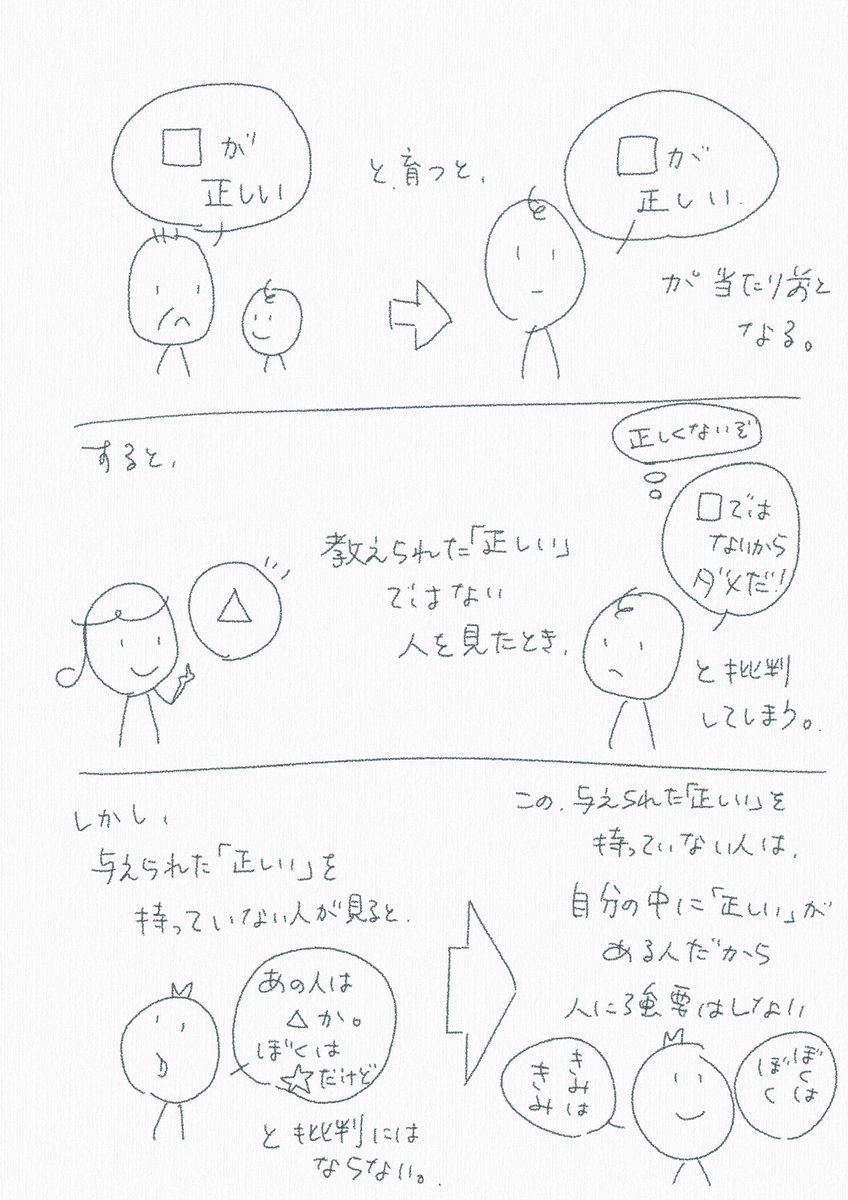 □が
正しい
と育つと、
□が
正しい.
が当たり前と
なる。
すると、
△
教えられた「正しい」
ではない
人を見たとき、
正しくないぞ
□では
ないから
ダメだ!
と批判
してしまう。
しかし、
与えられた「正しい」を
持っていない人が見ると、
あの人は
△か。
ぼくは
☆だけど
と批判には
ならない。
この、与えられた「正しい」を
持っていない人は、
自分の中に「正しい」が
ある人だから
人に強要はしない
きみは
きみ
ぼくは
ぼく